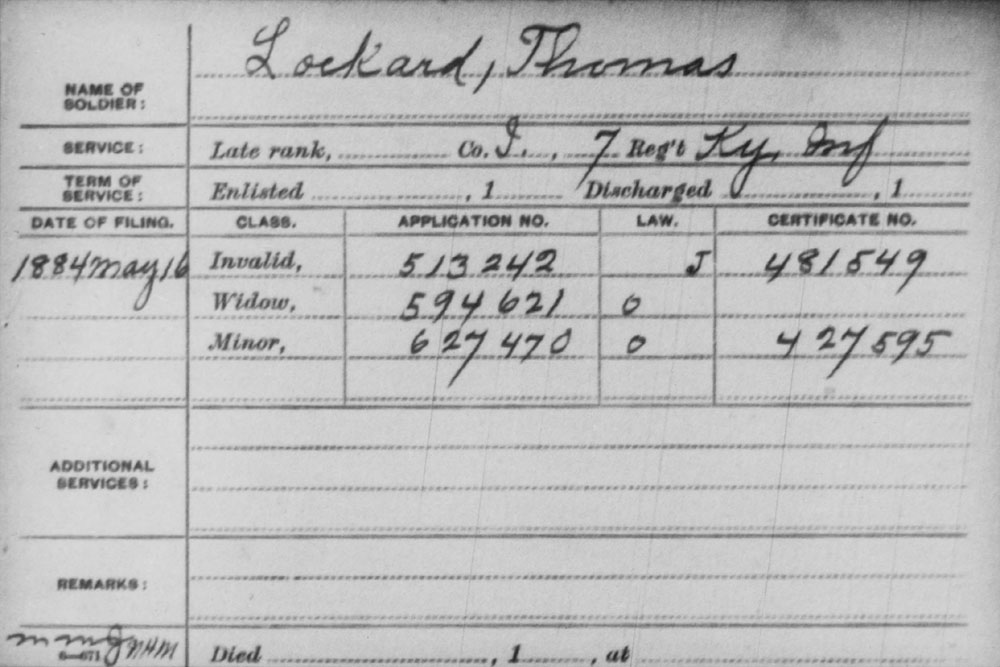 Lockard, Thomas
NAME OF
SOLDIER:
SERVICE: Late rank, Co. I., 7 Reg't Ky. Inf
TERM OF
SERVICE: Enlisted , 1 Discharged , 1
DATE OF FILING. CLASS. APPLICATION NO. LAW. CERTIFICATE NO.
1884 May 16 Invalid, 513 242 J 481549
Widow, 594 621 O
Minor, 627 470 O 427595
ADDITIONAL
SERVICES:
REMARKS:
6—671
Died , 1 , at